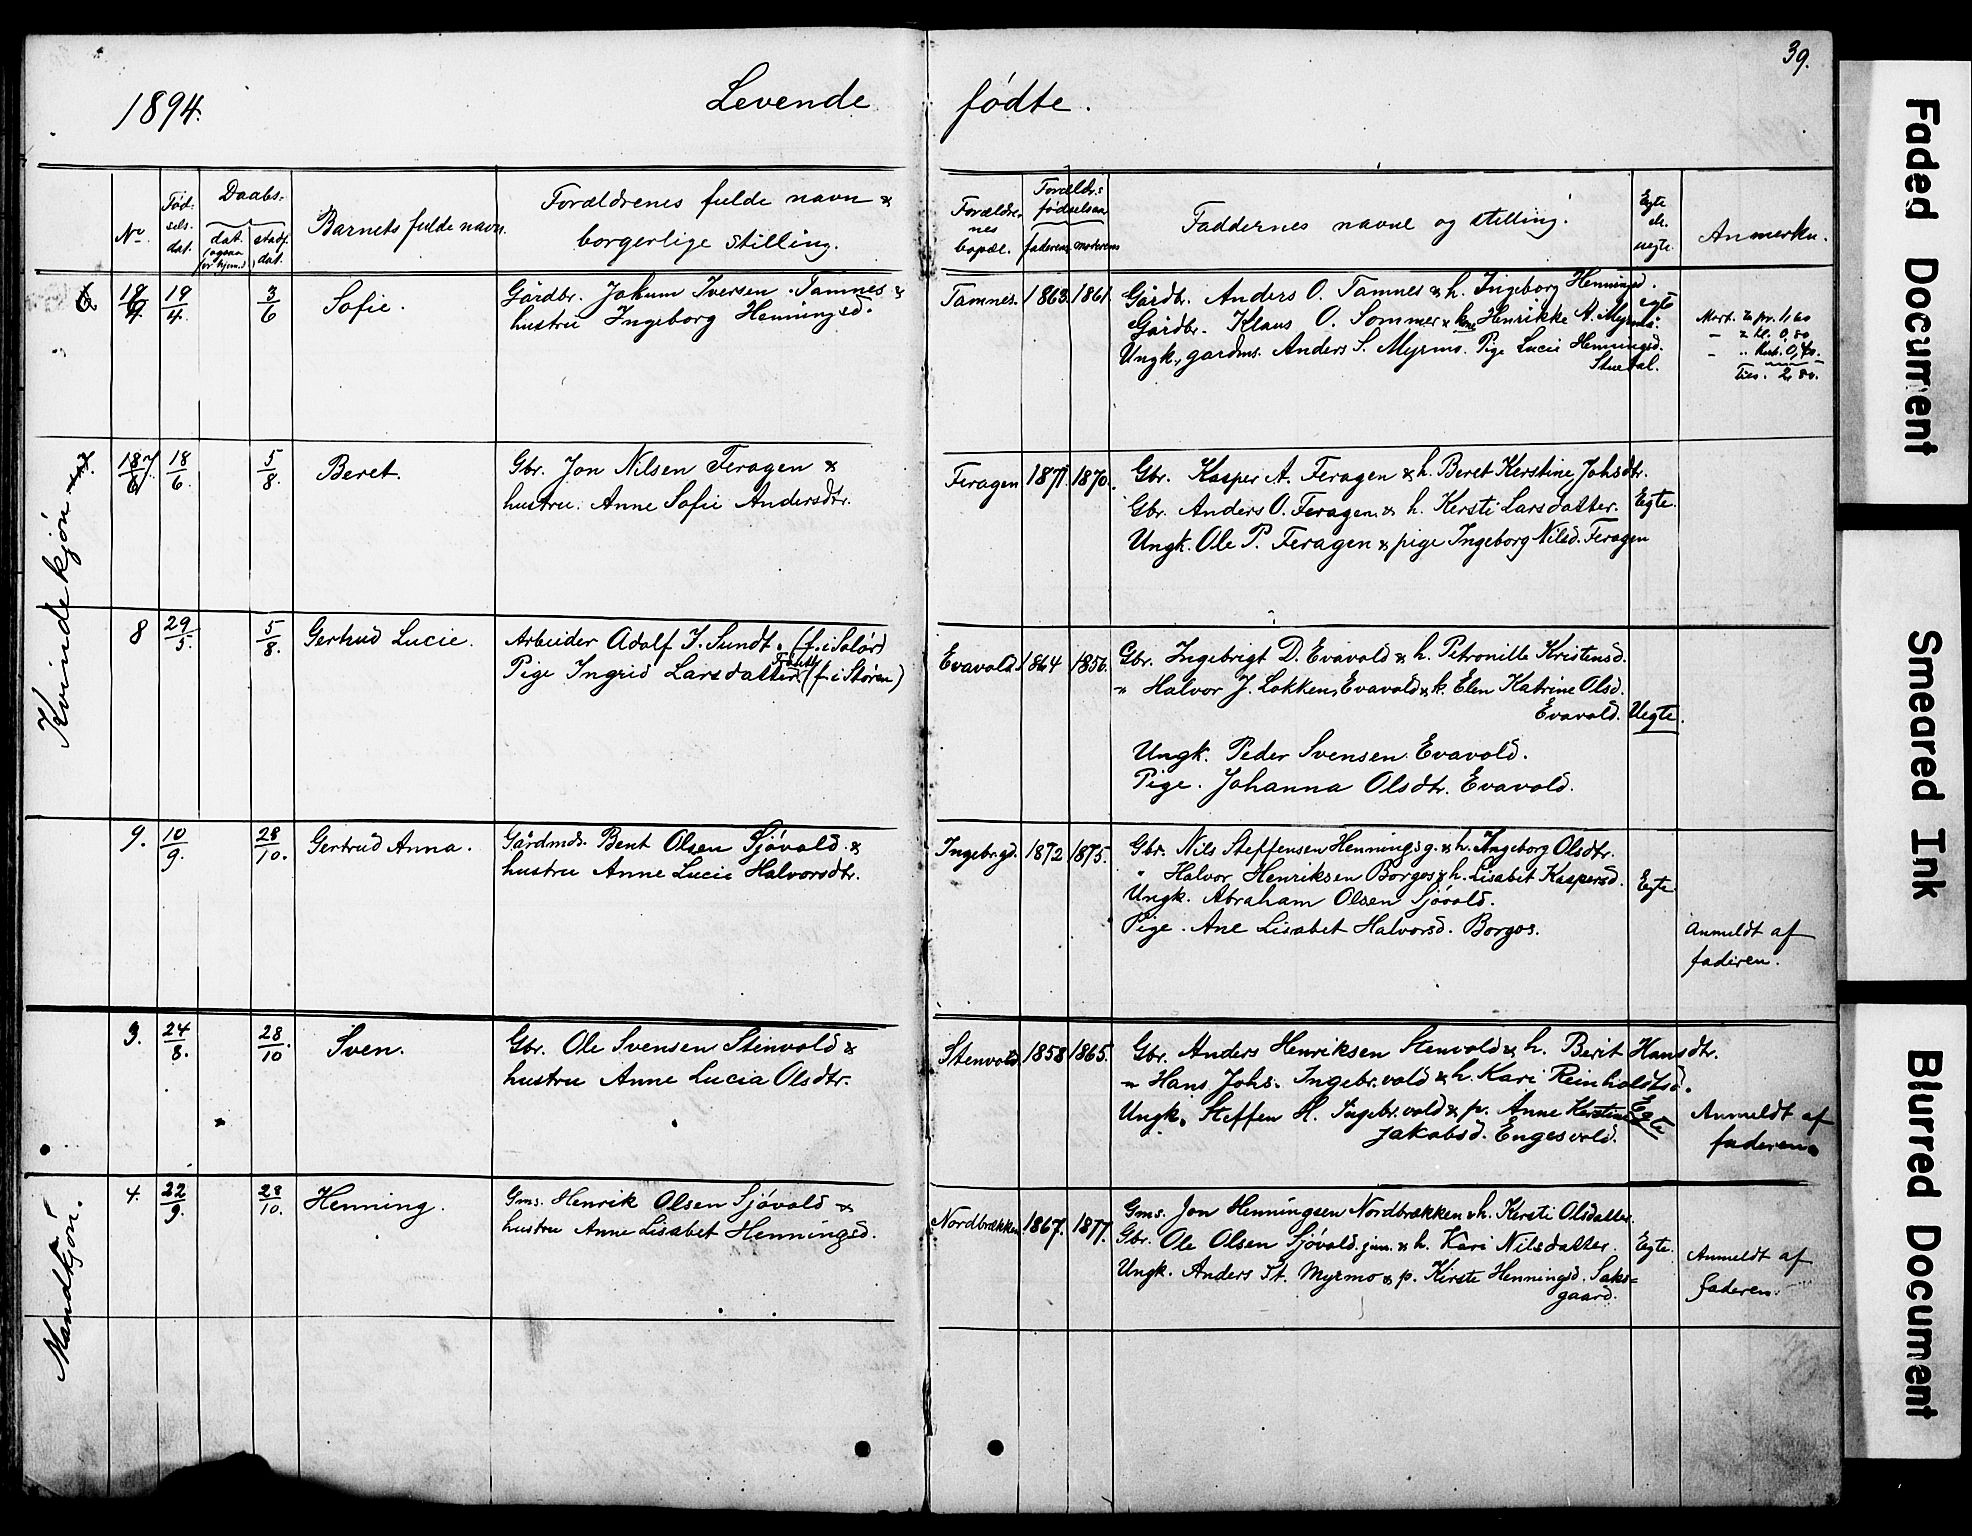 39.
1894. Levende fødte.
No. Fød-sels-dat. Daabs- dat. (ogsaa for hjem.d.) stadf. dat. Barnets fulde navn. Forældrenes fulde navn & borgerlige stilling. Forældre-nes bopæl. Forældr.s fødselsaar faderens moderens Faddernes navne og stilling. Egte el. uegte. Anmerkn.
Kvindekjøn
6 19/4 3/6 Sofie. Gårdbr. Jakum Iversen Tamnes &
hustru Ingeborg Henningsd.
Tamnes. 1863. 1861. Gårdbr. Anders O. Tamnes & h. Ingeborg Henningsd.
Gårdbr. Klaus O. Sommer & kone Henrikke A. Myrmo. egte
Ungk., gardms. Anders S. Myrmo. Pige Lucie Henningsd.
Stuedal.
1,60
0,80
0,40.
2,80.
7. 18/6 5/8. Beret. Gbr. Jon Nilsen Feragen &
hustru. Anne Sofie Andersdtr.
Feragen 1871. 1870. Gbr. Kasper A. Feragen & h. Beret Kerstine Johsdtr.
Gbr. Anders O. Feragen & h. Kersti Larsdatter. Egte.
Ungk. Ole P. Feragen & pige Ingeborg Nilsd. Feragen
8 29/5. 5/8. Gertrud Lucie. Arbeider Adolf J. Sundt. (f. i Solør)
Pige Ingrid Larsdatter. (f. i Støren)
Evavold. 1864 1856. Gbr. Ingebrigt D. Evavold & h. Petronille Kristensd.
" Halvor J. Løkken, Evavold & k. Elen Katrine Olsd.
Evavold. Uegte.
Ungk. Peder Svensen Evavold.
Pige. Johanna Olsdtr. Evavold.
9. 10/9. 28/10. Gertrud Anna. Gårdmd. Bent Olsen Sjøvold &
hustru Anne Lucie Halvorsdtr.
Ingebr.gd. 1872 1875. Gbr. Nils Steffensen Henningsg. & h. Ingeborg Olsdtr.
" Halvor Henriksen Borgos & h. Lisabet Kaspersd. Egte
Ungk. Abraham Olsen Sjøvold.
Pige. Ane Lisabet Halvorsd. Borgos. Anmeldt af
faderen.
Mandkjøn.
3. 24/8. 28/10. Sven. Gbr. Ole Svensen Stenvold &
hustru Anne Lucia Olsdtr.
Stenvold. 1858 1865. Gbr. Anders Henriksen Stenvold & h. Berit Hansdtr.
" Hans Johs. Ingebr.vold & h. Kari Reinholdtsd.
Ungk. Steffen H. Ingebr.vold & p. Anne Kerstine Egte Anmeldt af
Jakobsd. Engesvold. faderen.
4. 22/9. 28/10. Henning. Gms. Henrik Olsen Sjøvold &
hustru Anne Lisabet Henningsd.
Nordbrækken. 1867. 1877. Gms. Jon Henningsen Nordbrækken & h. Kersti Olsdatter.
Gbr. Ole Olsen Sjøvold jun. & h. Kari Nilsdatter. Egte. Anmeldt af
Ungk. Anders St. Myrmo & p. Kirste Henningsd. Saks- faderen.
gaard.
Faded Document
Smeared Ink
Blurred Document